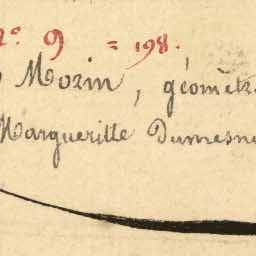 2º. 9 = 198.
Morin, géomètr
Marguerille Dumesn